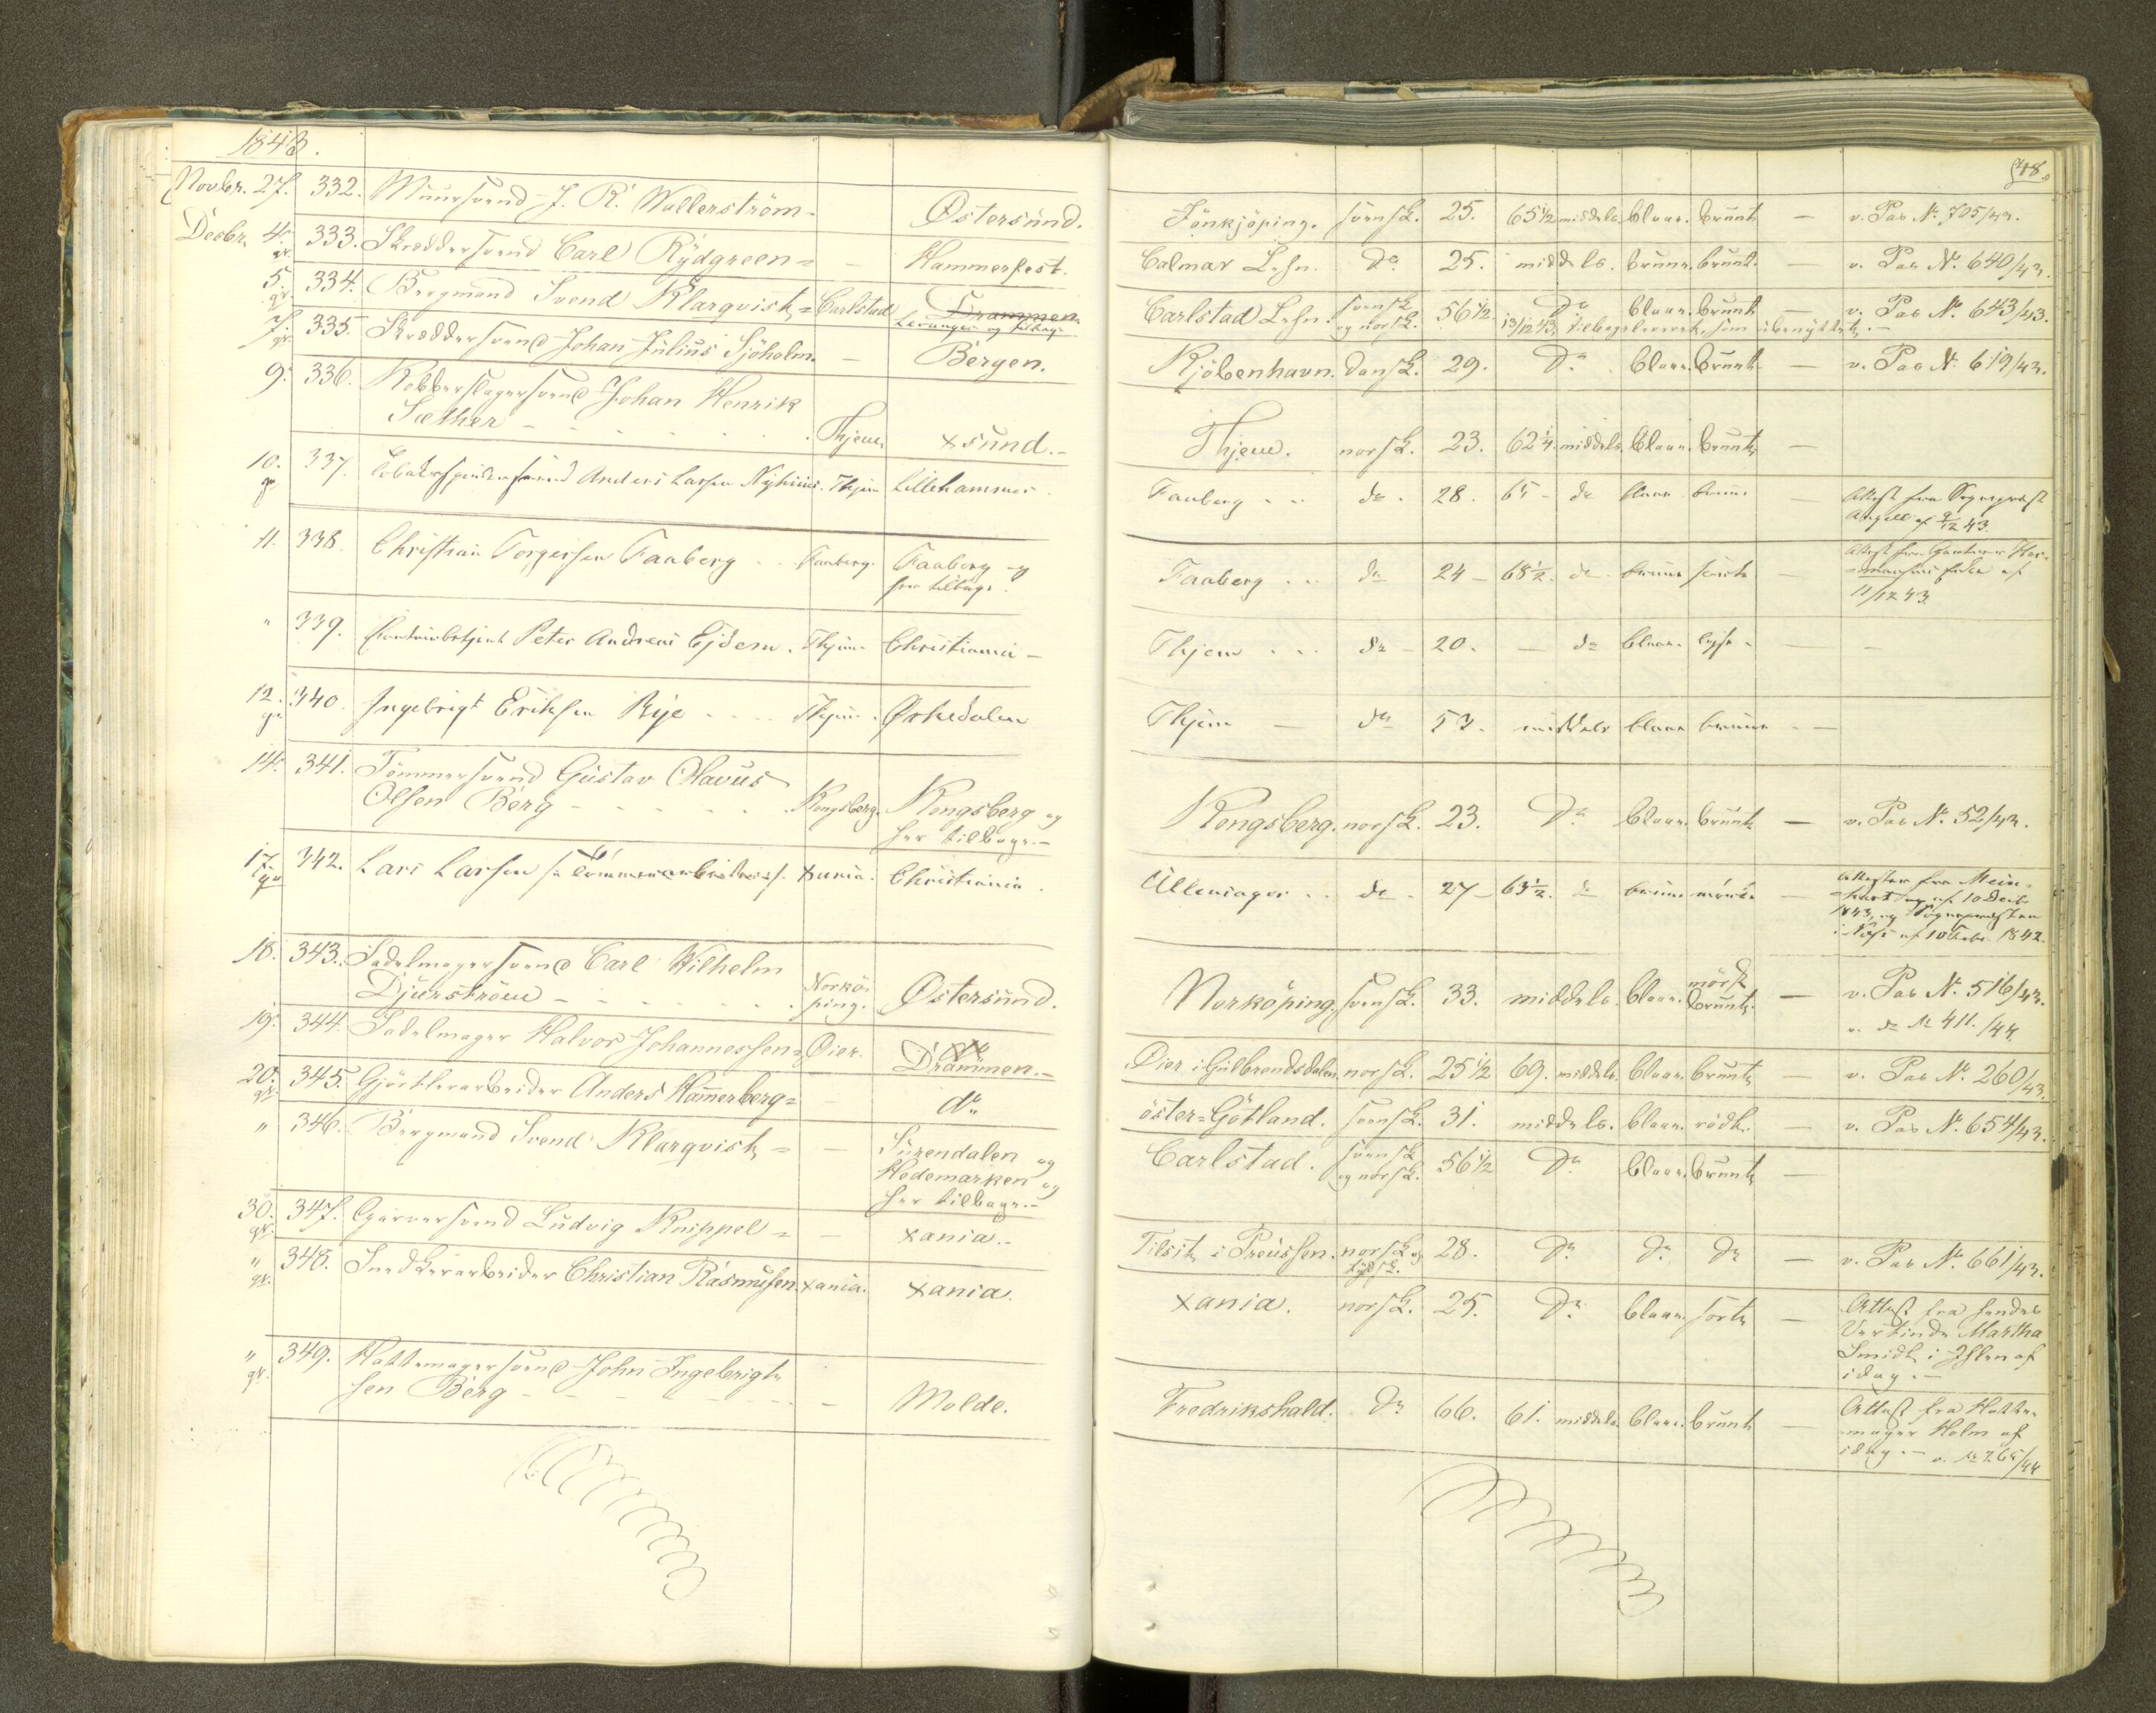 1843.
Novbr. 27. 332. Muursvend J. R. Wallerström - Østersund.
Decbr. 4. 333. Skræddersvend Carl Rÿdgreen = - Hammerfest.
gr.
5. 334. Bergmand Svend Klarqvist = Carlstad Drammen.
gr. Levanger og tilbage
7. 335. Skræddersvend Johan Julius Sjöholm. - Bergen.
gr.
9. 336. Kobberslagersvend Johan Henrik
Sæther - - - - Thjem. xsund.-
10. 337. Tobaksspindersvend Anders Larsen Nyhuus. Thjem Lillehammer.
gr
11. 338. Christian Torgersen Faaberg . . Faaberg. Faaberg og
her tilbage.
" 339. Peter Andreas Ejdem. Thjem. Christiania -
12. 340. Ingebrigt Eriksen Rye . . . . Thjem. Ørkedalen
gr
14. 341. Tømmersvend Gustav Olavus
Olsen Berg - - - - Kongsberg. Kongsberg og
her tilbage.-
17. 342. Lars Larsen xania. Christiania.
gr
18. 343. Sadelmagersvend Carl Wilhelm
Djurström - - - - Norkö-
ping. Østersund.
19. 344. Sadelmager Halvor Johannessen = Øier. Drammen.-
20. 345. Gjörtlerarbeider Anders Hamerberg = - do
gr.
" 346. Bergmand Svend Klarqvist = - Surendalen og
Hedemarken og
her tilbage.-
30. 347. Garversvend Ludvig Knippel = - xania.-
gr.
" 348. Snedkerarbeider Christian Rasmussen xania. xania.
gr.
" 349. Hattemagersvend John Ingebrigt-
gr. sen Berg - - - - Molde.
Jönkjöping. svensk. 25. 65 1/2 middels. blaae. brunt - v. Pas No. 705/43.
Calmar Lehn. do 25. middels. brune. brunt. - v. Pas No. 640/43.
Carlstad Lehn. svensk
og norsk. 56 1/2 do blaae. brunt - v. Pas No. 643/43.
13/12 43 tilbageleveret, som ubenyttet.-
Kjöbenhavn. dansk. 29. do blaae. brunt - v. Pas No. 619/43.
Thjem. norsk. 23. 62 1/4. middels. blaae. brunt -
Faaberg . . do. 28. 65 - do blaae brune Attest fra Sognepræst
Angell af 9/12 43.
Faaberg . . do 24 - 68 1/2. do brune sorte - Attest fra
11/12 43.
Thjem . . . do - 20. - do blaae lyse - - -
Thjem - do 53. middels blaae brune - -
Kongsberg. norsk. 23. do blaae. brunt - v. Pas No. 52/43.
Ullensager . . do. 27 - 63 1/2. do brune mörke - Attester fra Mein-
af 10 Decbr.
1843, og Sognepræsten
i Næs af 10 1842.
Norköping. svensk. 33. middels. blaae. mörk
brunt. - v. Pas No. 516/43.
v. do No 411./44
Øier i Gulbrandsdalen. norsk. 25 1/2 69. middels. blaae. brunt - v. Pas No. 260/43.
öster=Götland. svensk. 31. middels. blaae. rödt. - v. Pas No. 654/43.
Carlstad. svensk
og norsk. 56 1/2 do blaae. brunt -
Tilsit i Preussen. norsk og
tydsk. 28. do do do - v. Pas No. 661/43.
xania. norsk. 25. do blaae. sort - Attest fra hendes
Vertinde Martha
Smidt i Ihlen af
idag.-
Fredrikshald. do 66. 61. middels. blaae. brunt - Attest fra Hatte-
mager Holm af
idag.- v. No 265/44